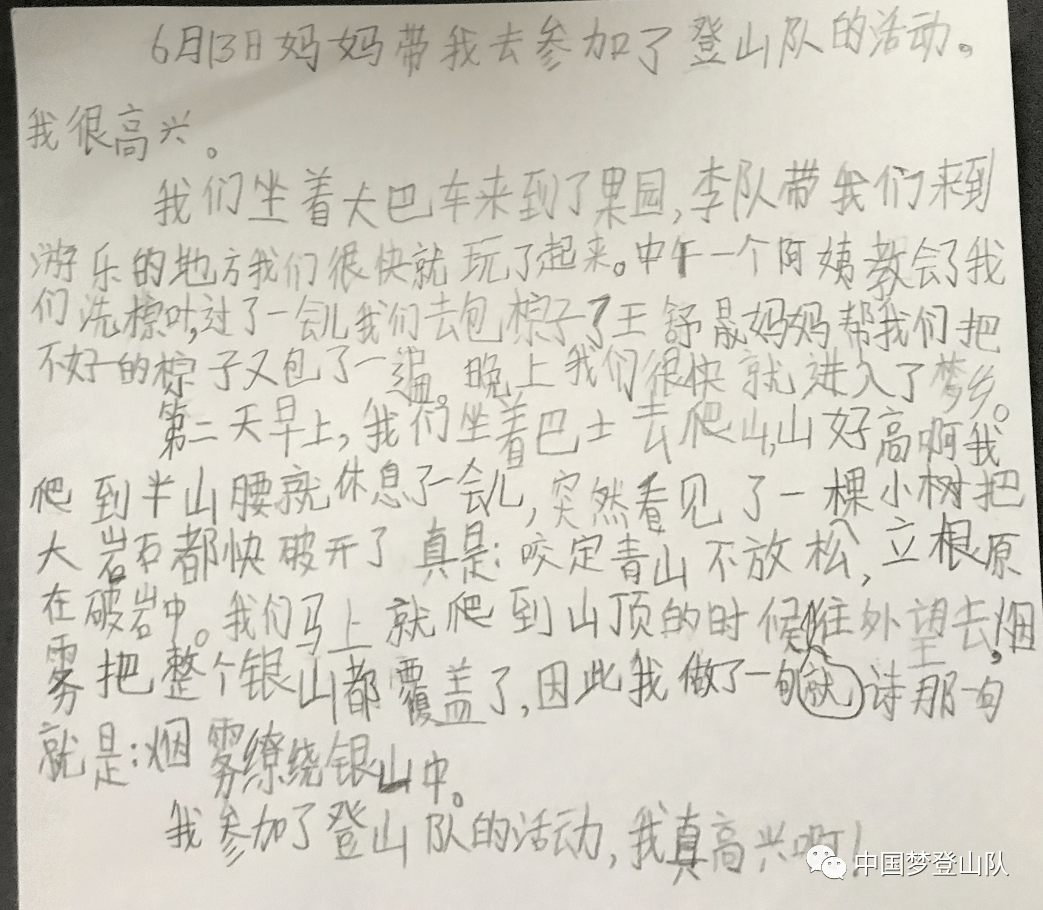 6月13日妈妈带我去参加了登山队的活动。
我很高兴。
我们坐着大巴车来到了果园,李队带我们来到
游乐的地方我们很快就玩了起来。中午一个阿姨教会了我
们洗粽叶,过了一会儿我们去包粽子了王舒晟妈妈帮我们把
不好的粽子又包了一遍。晚上我们很快就进入了梦乡。
第二天早上,我们坐着巴士去爬山,山好高啊我
爬到半山腰就休息了一会儿,突然看见了一棵小树把
大岩石都快破开了真是:咬定青山不放松,立根原
在破岩中。我们马上就爬到山顶的时候往外望去,烟
雾把整个银山都覆盖了,因此我做了一句诗那句
就是:烟雾缭绕银山中。
我参加了登山队的活动,我真高兴啊!
中国梦登山队